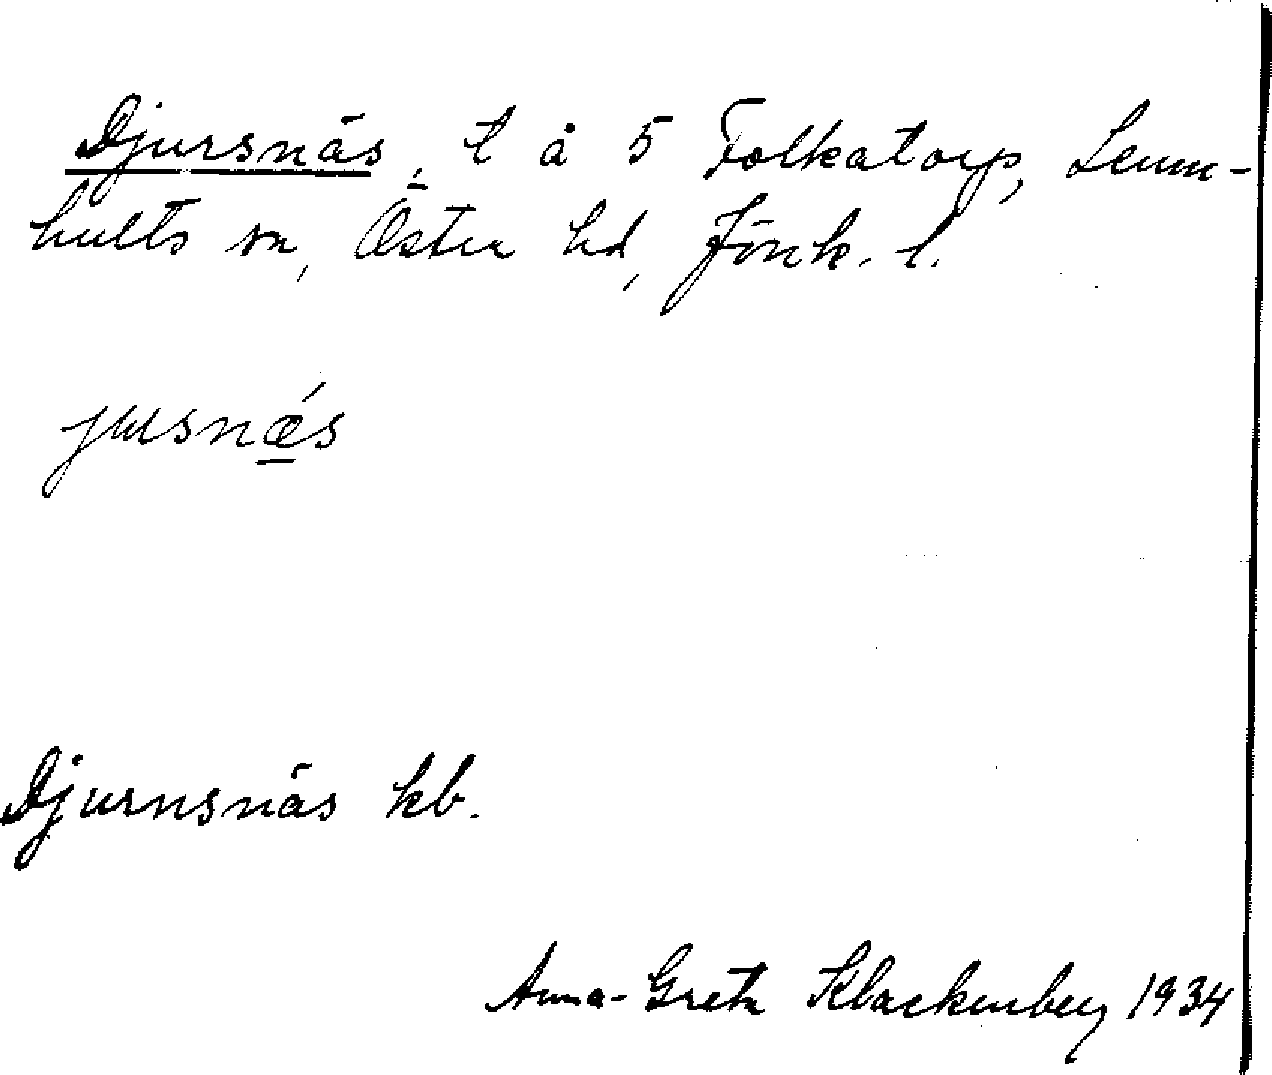 Djursnäs, t å 5 Folkatorp, Lemn-
hults sn, Östra hd, Jönk. l.
jusnǽ̱s
Djurnsnäs kb.
Anna-Greta Klackenberg 1934